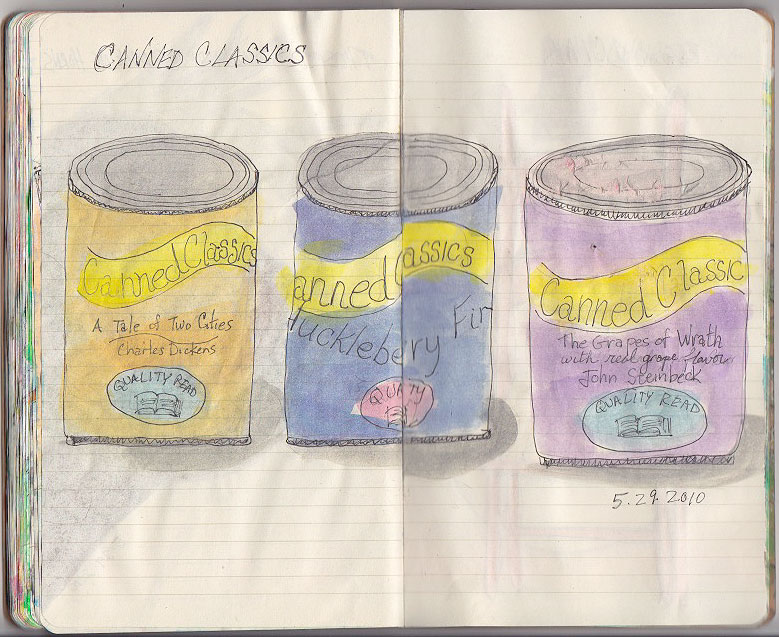 CANNED CLASSICS
Canned Classics
A Tale of Two Cities
Charles Dickens
QUALITY READ
anned assics
Huckleberry Fin
QUALITY
Canned Classic
The Grapes of Wrath
with real grape flavour
John Steinbeck
QUALITY READ
5.29.2010